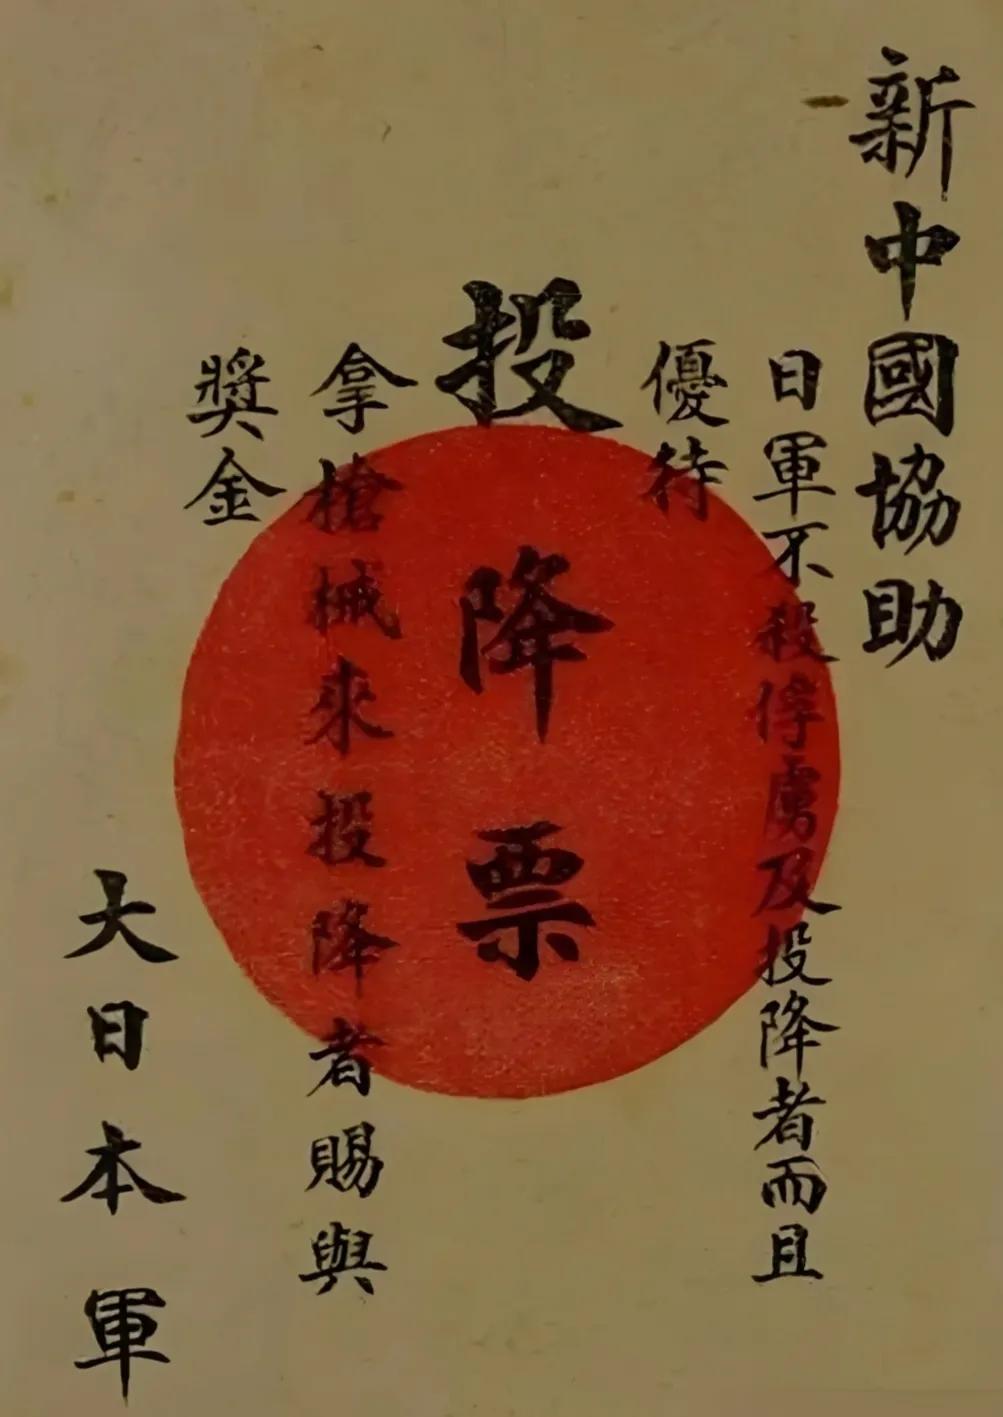 新中國協助
日軍不殺俘虜及投降者而且
優待
投降票
拿槍械來投降者賜與
獎金
大日本軍